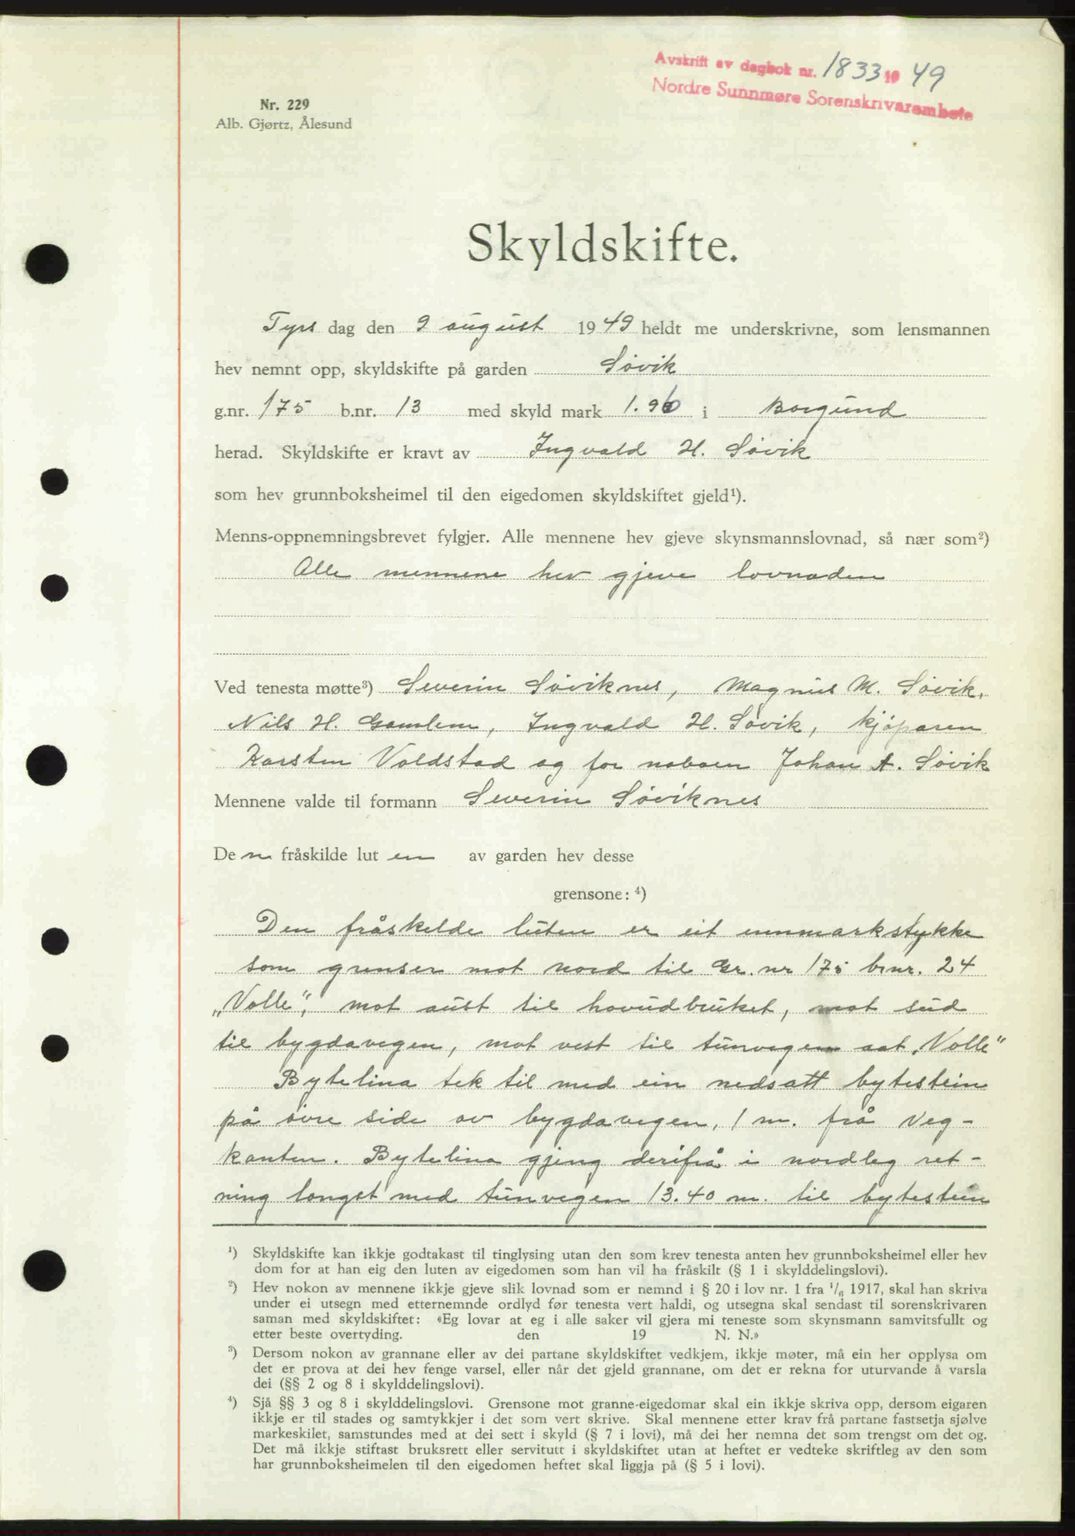 Avskrift av dagbok nr. 1833 1949
Nordre Sunnmøre Sorenskrivarembete
Nr. 229
Alb. Gjørtz, Ålesund
Skyldskifte.
Tyrs dag den 9 august 1949 heldt me underskrivne, som lensmannen
hev nemnt opp, skyldskifte på garden Søvik
g.nr. 175 b.nr. 13 med skyld mark 1.96 i Borgund
herad. Skyldskifte er kravt av Ingvald H. Søvik
som hev grunnboksheimel til den eigedomen skyldskiftet gjeld¹).
Menns-oppnemningsbrevet fylgjer. Alle mennene hev gjeve skynsmannslovnad, så nær som²)
Alle mennene hev gjeve lovnaden
Ved tenesta møtte³) Severin Søviknes, Magnus M. Søvik,
Nils H. Gamlem, Ingvald H. Søvik, kjøparen
Karsten Voldstad og for naboen Johan A. Søvik
Mennene valde til formann Severin Søviknes
De n fråskilde lut en av garden hev desse
grensone: ⁴)
Den fråskelde luten er eit innmarkstykke
som grenser mot nord til Gr. nr 175 bnr. 24
„Volle", mot aust til hovudbruket, mot sud
til bygdavegen, mot vest til tunvegen aat „Volle"
Bytelina tek til med ein nedsatt bytestein
på øvre side av bygdavegen, 1 m. frå veg-
kanten. Bytelina gjeng derifrå i nordleg ret-
ning langst med tunvegen 13.40 m. til bytestein
¹) Skyldskifte kan ikkje godtakast til tinglysing utan den som krev tenesta anten hev grunnboksheimel eller hev
dom for at han eig den luten av eigedomen som han vil ha fråskilt (§ 1 i skylddelingslovi).
²) Hev nokon av mennene ikkje gjeve slik lovnad som er nemnd i § 20 i lov nr. 1 fra ¹/₆ 1917, skal han skriva
under ei utsegn med etternemnde ordlyd før tenesta vert haldi, og utsegna skal sendast til sorenskrivaren
saman med skyldskiftet: «Eg lovar at eg i alle saker vil gjera mi teneste som skynsmann samvitsfullt og
etter beste overtyding. den 19 N. N.»
³) Dersom nokon av grannane eller av dei partane skyldskiftet vedkjem, ikkje møter, må ein her opplysa om
det er prova at dei hev fenge varsel, eller når det gjeld grannane, om det er rekna for uturvande å varsla
dei (§§ 2 og 8 i skylddelingslovi).
⁴) Sjå §§ 3 og 8 i skylddelingslovi. Grensone mot granne-eigedomar skal ein ikkje skriva opp, dersom eigaren
ikkje er til stades og samtykkjer i det som vert skrive. Skal mennene etter krav frå partane fastsetja sjølve
markeskilet, samstundes med at dei sett i skyld (§ 7 i lovi), må dei her nemna det som trengst om det og.
Det må ikkje stiftast bruksrett eller servitutt i skyldskiftet utan at hefter er vedteke skriftleg av den som
har grunnboksheimelen til den eigedomen heftet skal liggja på (§ 5 i lovi).